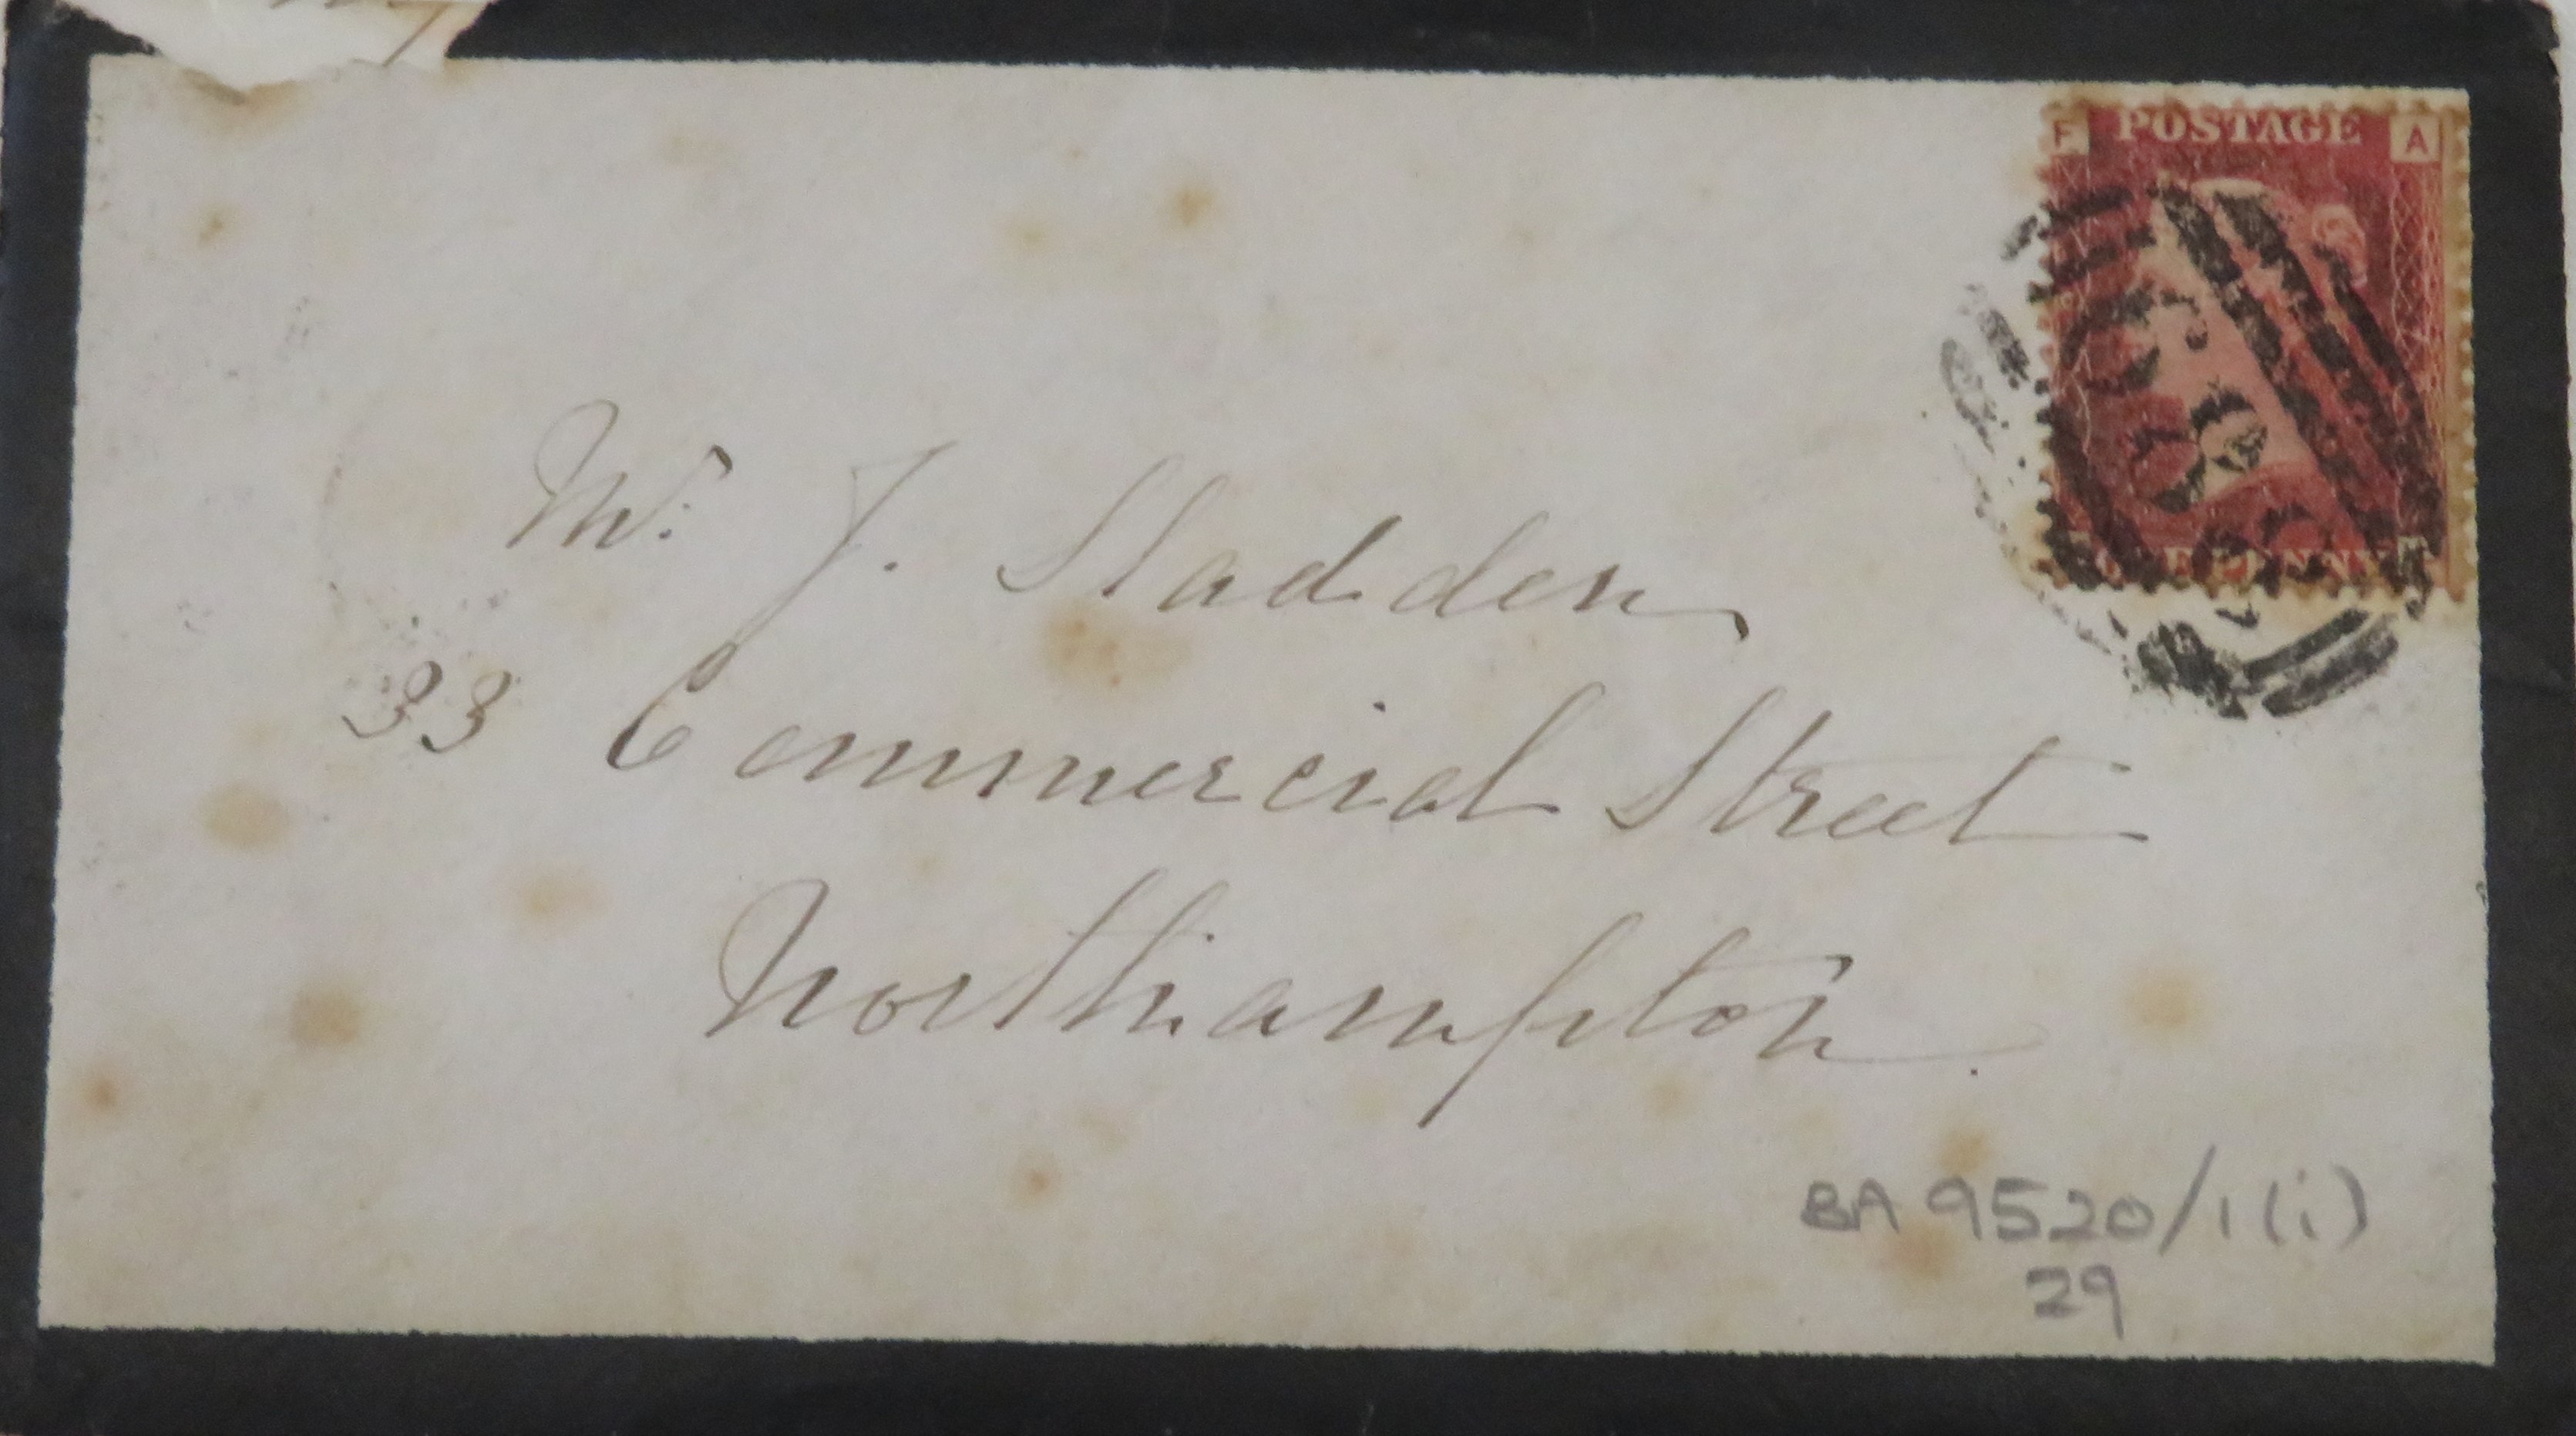 F POSTAGE A
Mr. J. Sladden
33 Commercial Street
Northampton
BA 9520/1(i)
29